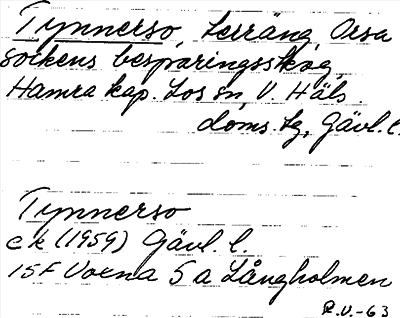 Tynnerso, terräng, Orsa
sockens besparingsskog,
Hamra kap. Los sn, V. Häls.
doms. tg, Gävl. l.
Tynnerso
ek (1959) Gävl. l.
15F Voxna 5 a Långholmen
R.U.-63